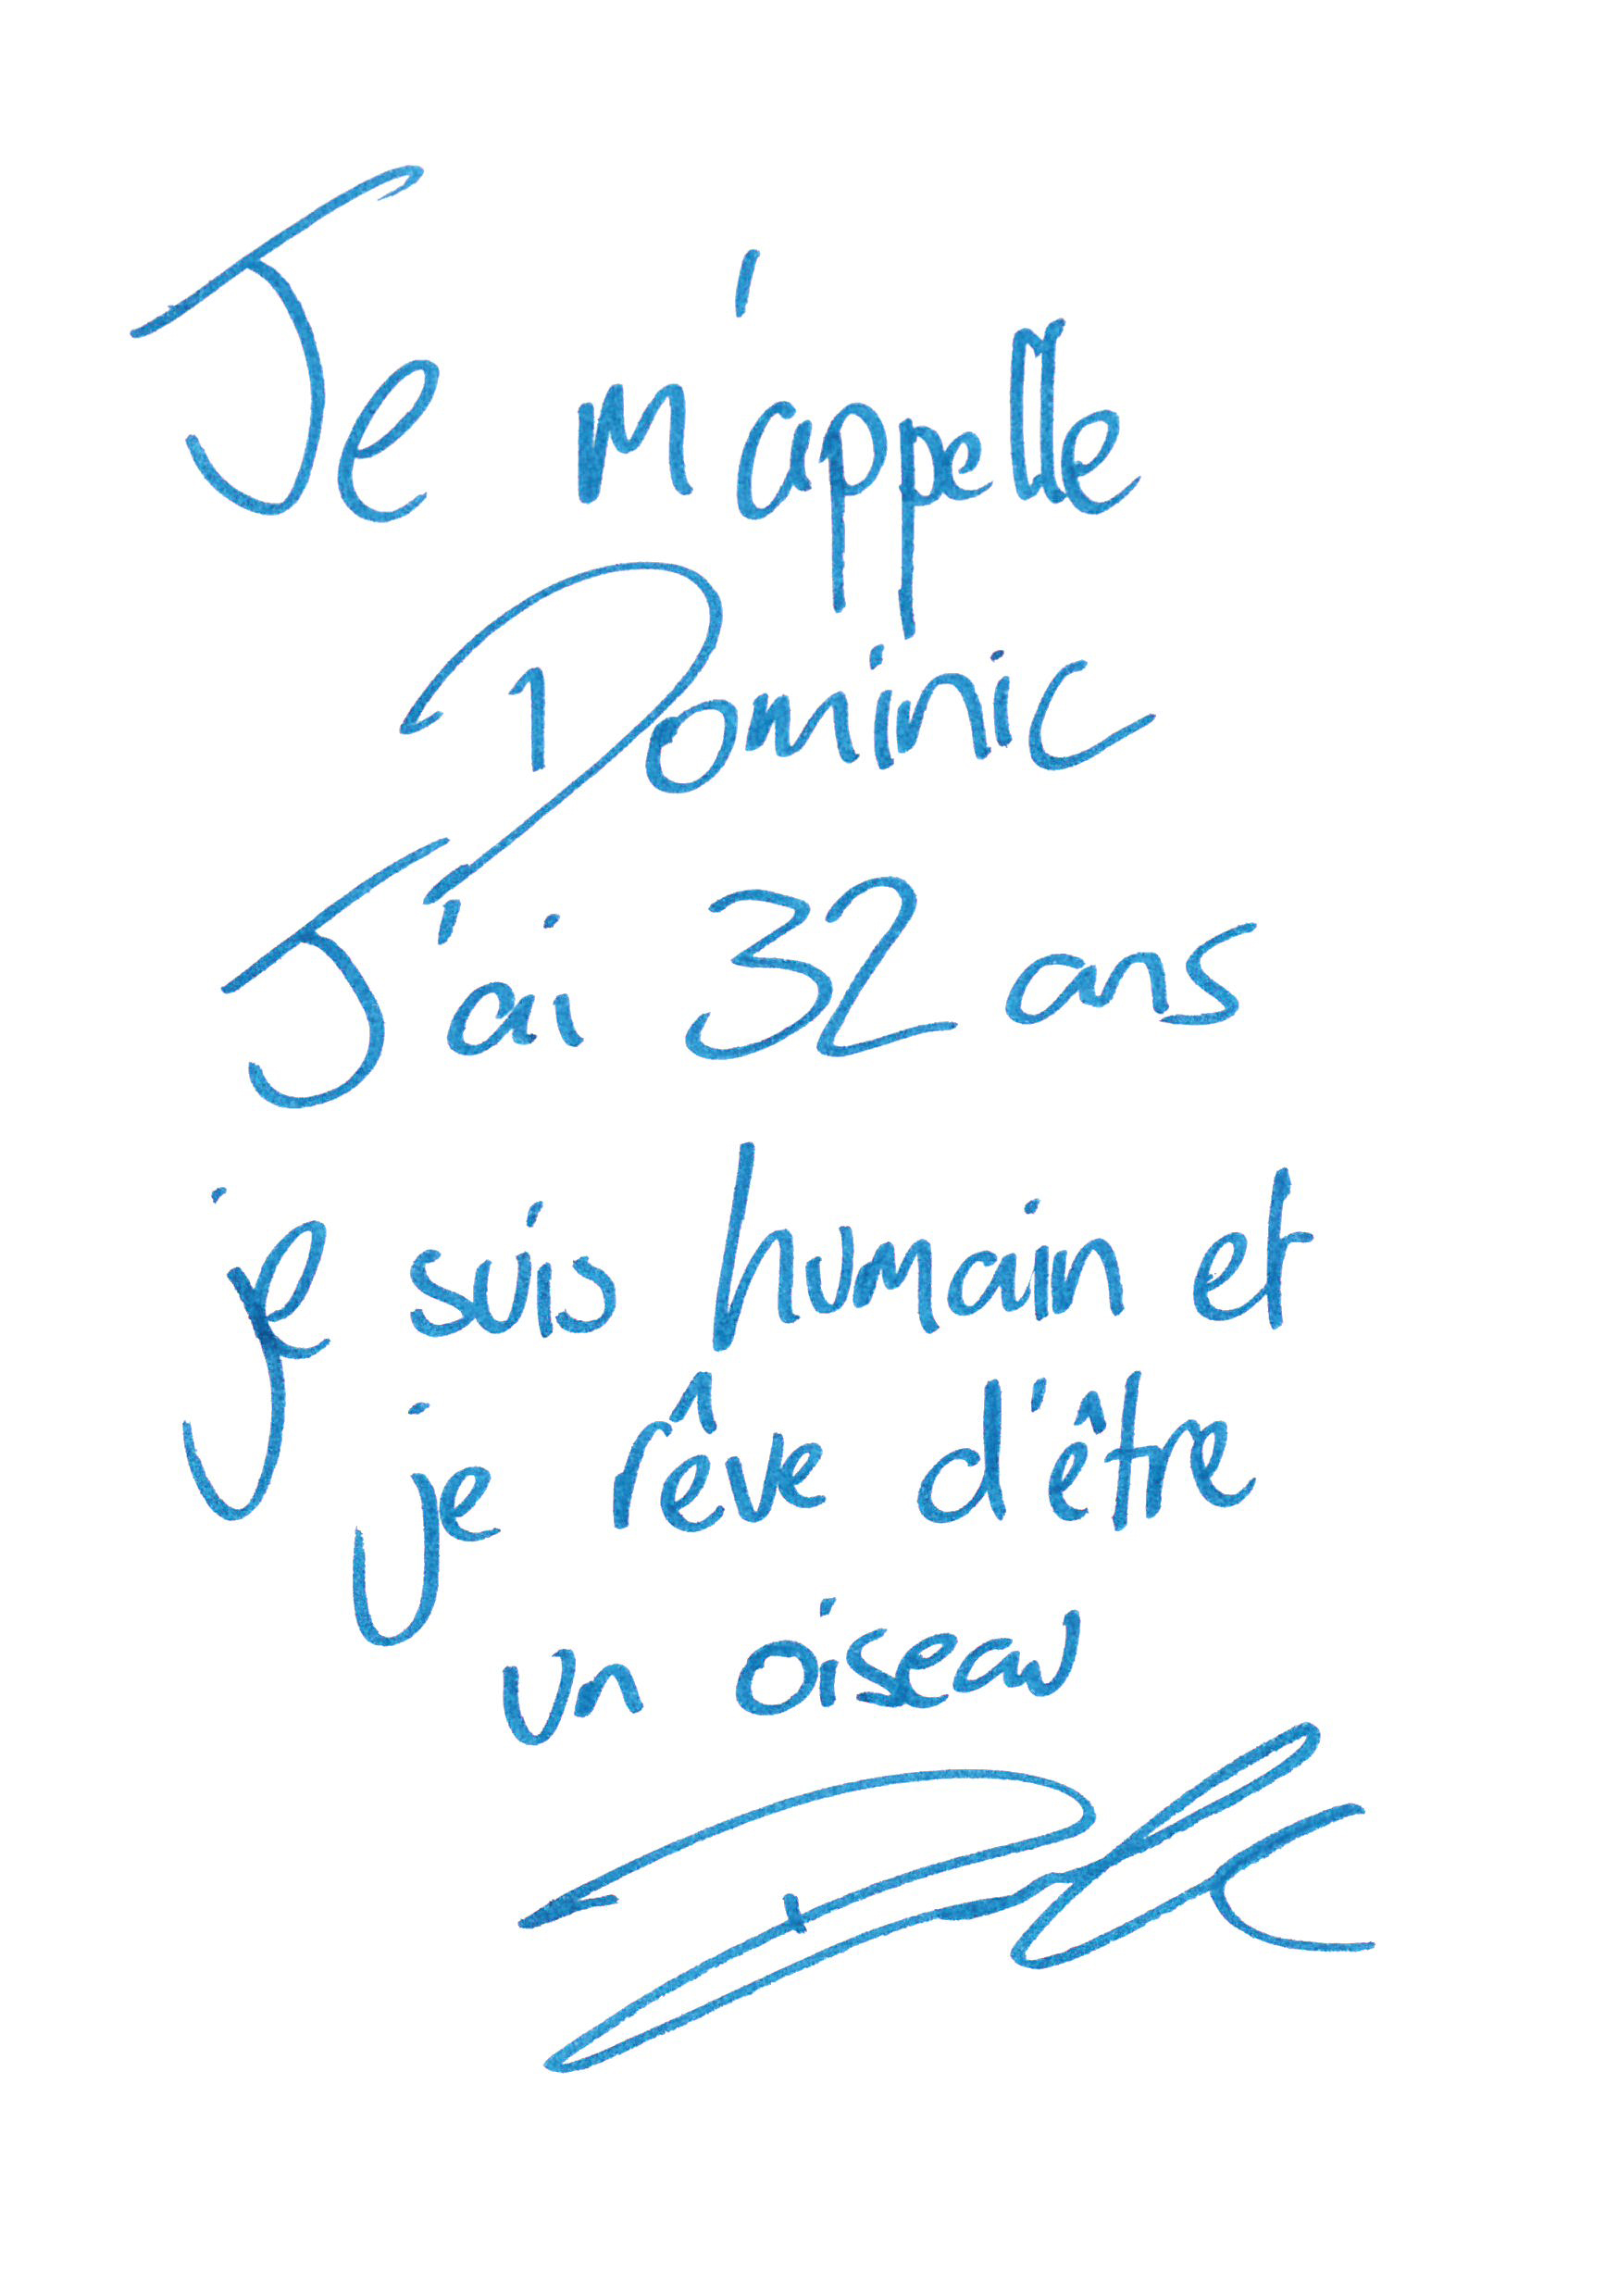 Je m'appelle
Dominic
J'ai 32 ans
je suis humain et
je rêve d'être
un oiseau